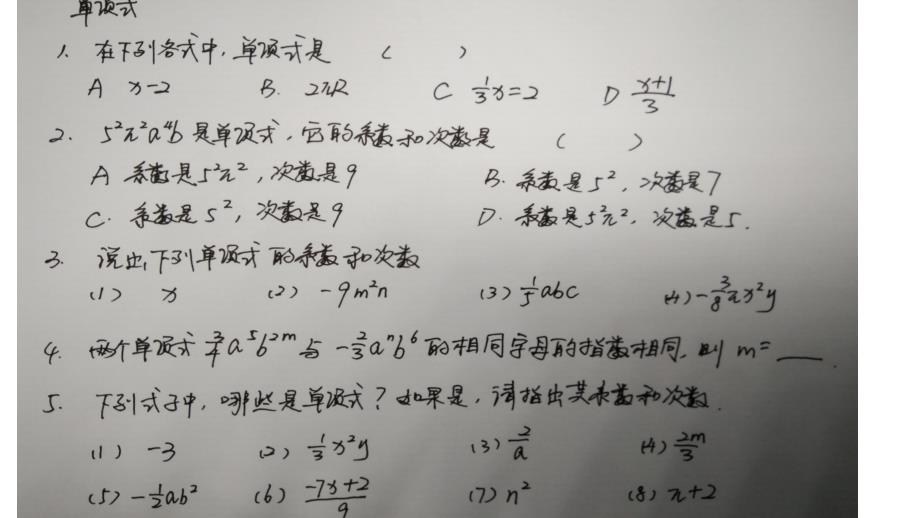 单项式
1. 在下列各式中，单项式是 （ ）
A x-2 B. 2πR C 1/3x=2 D (x+1)/3
2. 5²π²a⁴b 是单项式，它的系数和次数是 （ ）
A 系数是5²π²，次数是9 B. 系数是5²，次数是7
C. 系数是5²，次数是9 D. 系数是5²π²，次数是5.
3. 说出下列单项式的系数和次数
(1) x (2) -9m²n (3) 1/5abc (4) -3/8πx²y
4. 两个单项式 3/4a⁵b²ᵐ与 -2/3aⁿb⁶的相同字母的指数相同，则 m=___.
5. 下列式子中，哪些是单项式？如果是，请指出其系数和次数.
(1) -3 (2) 1/3x²y (3) 2/a (4) 2m/3
(5) -1/2ab² (6) (-7x+2)/9 (7) n² (8) π+2